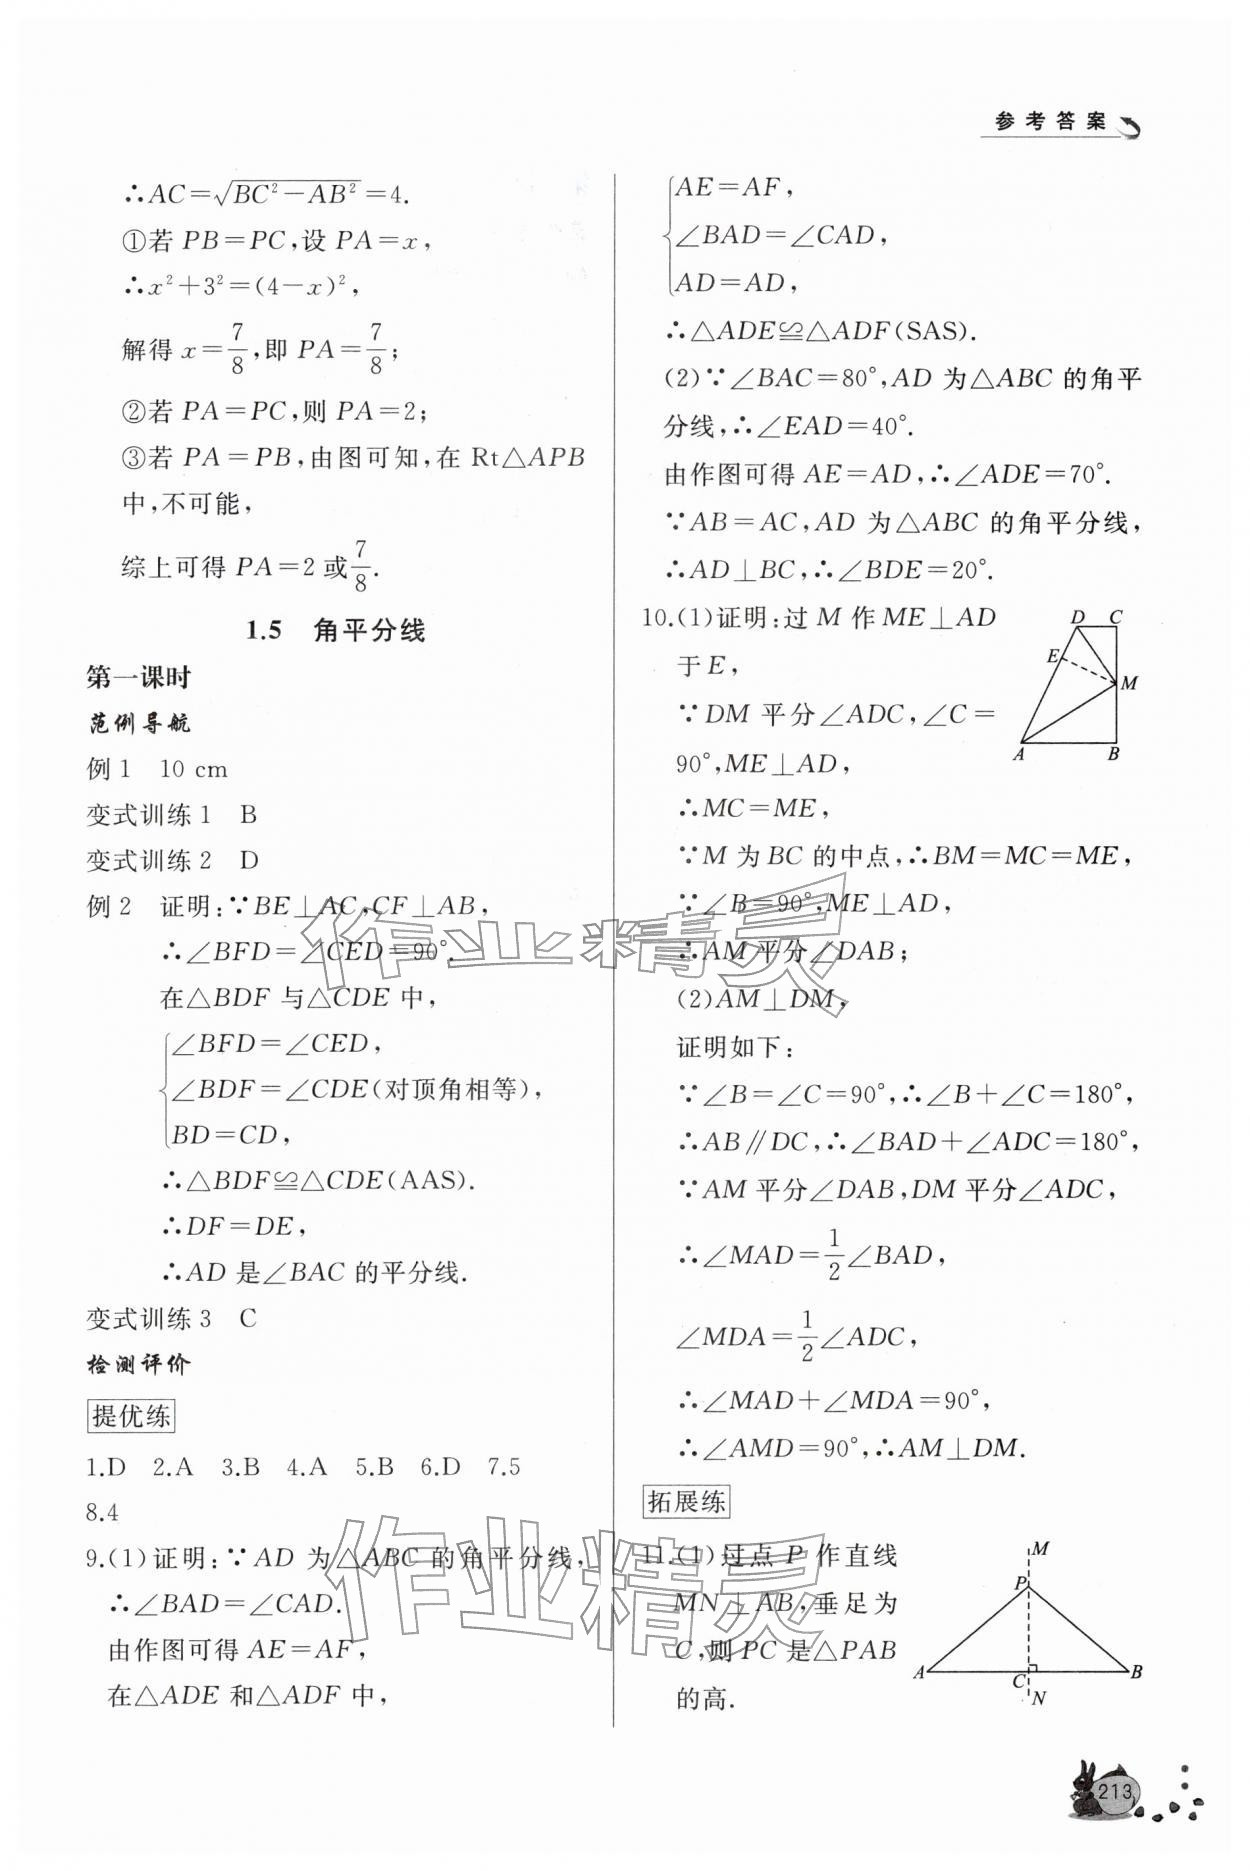 参考答案
∴AC=√(BC²-AB²)=4.
①若 PB=PC,设 PA=x,
∴x²+3²=(4-x)²,
解得 x=7/8,即 PA=7/8;
②若 PA=PC,则 PA=2;
③若 PA=PB,由图可知,在 Rt△APB
中,不可能,
综上可得 PA=2 或7/8.
1.5 角平分线
第一课时
范例导航
例1 10 cm
变式训练1 B
变式训练2 D
例2 证明:∵BE⊥AC,CF⊥AB,
∴∠BFD=∠CED=90°.
在△BDF 与△CDE 中,
∠BFD=∠CED,
∠BDF=∠CDE(对顶角相等),
BD=CD,
∴△BDF≌△CDE(AAS).
∴DF=DE,
∴AD 是∠BAC 的平分线.
变式训练3 C
检测评价
提优练
1.D 2.A 3.B 4.A 5.B 6.D 7.5
8.4
9.(1)证明:∵AD 为△ABC 的角平分线,
∴∠BAD=∠CAD.
由作图可得 AE=AF,
在△ADE 和△ADF 中,
AE=AF,
∠BAD=∠CAD,
AD=AD,
∴△ADE≌△ADF(SAS).
(2)∵∠BAC=80°,AD 为△ABC 的角平
分线,∴∠EAD=40°.
由作图可得 AE=AD,∴∠ADE=70°.
∵AB=AC,AD 为△ABC 的角平分线,
∴AD⊥BC,∴∠BDE=20°.
10.(1)证明:过 M 作 ME⊥AD
于 E,
∵DM 平分∠ADC,∠C=
90°,ME⊥AD,
∴MC=ME,
∵M 为 BC 的中点,∴BM=MC=ME,
∵∠B=90°,ME⊥AD,
∴AM 平分∠DAB;
(2)AM⊥DM,
证明如下:
∵∠B=∠C=90°,∴∠B+∠C=180°,
∴AB∥DC,∴∠BAD+∠ADC=180°,
∵AM 平分∠DAB,DM 平分∠ADC,
∴∠MAD=1/2∠BAD,
∠MDA=1/2∠ADC,
∴∠MAD+∠MDA=90°,
∴∠AMD=90°,∴AM⊥DM.
D C
E
M
A B
拓展练
11.(1)过点 P 作直线
MN⊥AB,垂足为
C,则 PC 是△PAB
的高.
M
P
A C B
N
作业精灵
作业精灵
213